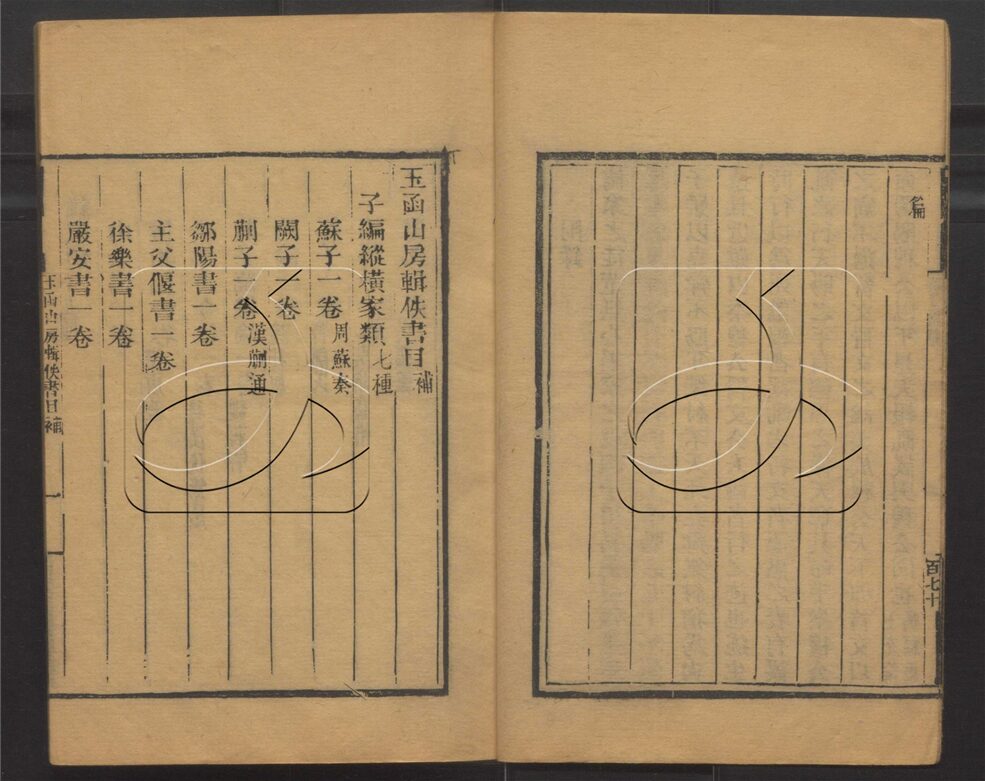 編
百七十
玉函山房輯佚書目補
子編縱橫家類七種
蘇子一卷周蘇秦
闕子一卷
蒯子一卷漢蒯通
鄒陽書一卷
主父偃書一卷
徐樂書一卷
嚴安書一卷
玉函山房輯佚書目補